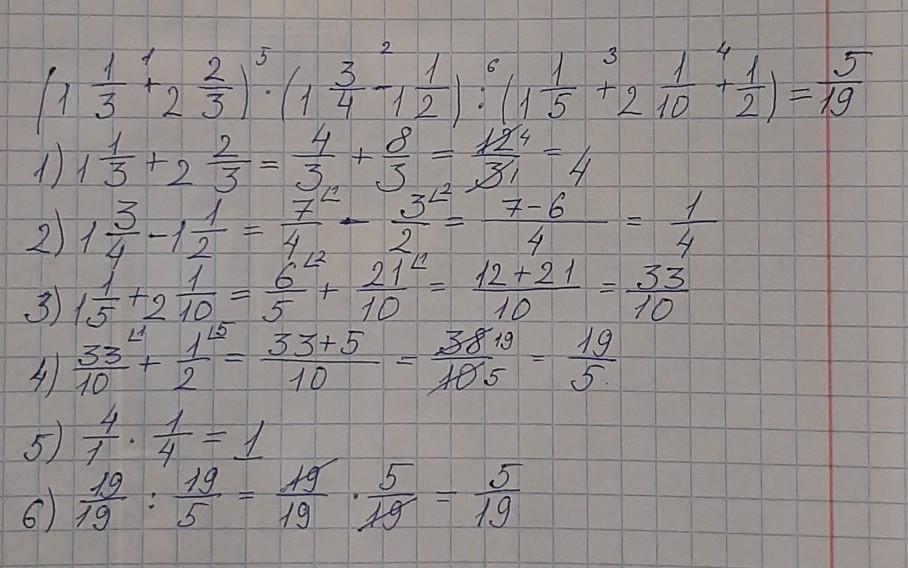 (1 1/3 +¹ 2 2/3) ·⁵ (1 3/4 -² 1 1/2) :⁶ (1 1/5 +³ 2 1/10 +⁴ 1/2) = 5/19
1) 1 1/3 + 2 2/3 = 4/3 + 8/3 = 12 4/3 1 = 4
2) 1 3/4 - 1 1/2 = 7/4 ⌊1 - 3/2 ⌊2 = 7-6/4 = 1/4
3) 1 1/5 + 2 1/10 = 6/5 ⌊2 + 21/10 ⌊1 = 12+21/10 = 33/10
4) 33/10 ⌊1 + 1/2 ⌊5 = 33+5/10 = 38 19/10 5 = 19/5.
5) 4/1 · 1/4 = 1
6) 19/19 : 19/5 = 19/19 · 5/19 = 5/19